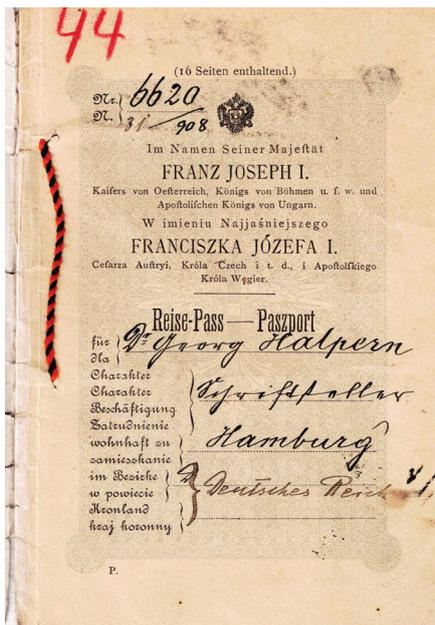 44
(16 Seiten enthaltend.)
Nr. 6620
N. 31/908
Im Namen Seiner Majestät
FRANZ JOSEPH I.
Kaisers von Oesterreich, Königs von Böhmen u. s. w. und
Apostolischen Königs von Ungarn.
W imieniu Najjaśniejszego
FRANCISZKA JÓZEFA I.
Cesarza Austryi, Króla Czech i t. d., i Apostolskiego
Króla Węgier.
Reise-Pass — Paszport
für
dla Dr Georg Halpern
Charakter
Charakter
Beschäftigung Schriftsteller
Zatrudnienie
wohnhaft zu Hamburg
zamieszkanie
im Bezirke
w powiecie Deutsches Reich
Kronland
kraj koronny
P.